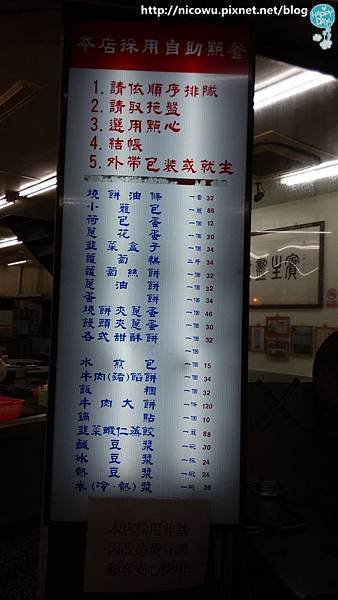 http://nicowu.pixnet.net/blog
HAPPY DAY
本店採用自助點餐
1. 請依順序排隊
2. 請取拖盤
3. 選用點心
4. 結帳
5. 外帶包裝或就坐
燒餅油條 一套 32
小籠包 一籠 88
荷包蛋 一個 12
蔥花蛋 一個 30
韭菜盒子 一個 34
蘿蔔糕 二片 34
蘿蔔絲餅 一個 34
蔥油餅 一個 34
蛋餅 一個 34
燒餅夾蔥蛋 一個 46
饅頭夾蔥蛋 一個 30
各式甜酥餅 一個 34
一個
水煎包 一個 15
牛肉(豬)餡餅 一個 34
飯糰 一個 34
牛肉大餅 一個 120
鍋貼 一個 10
韭菜蝦仁蒸餃 一籠 88
鹹豆漿 一碗 30
冰豆漿 24
熱豆漿 一碗 24
米(冷、熱)漿 26
本店採用非基
因改造黃豆請
顧客安心使用